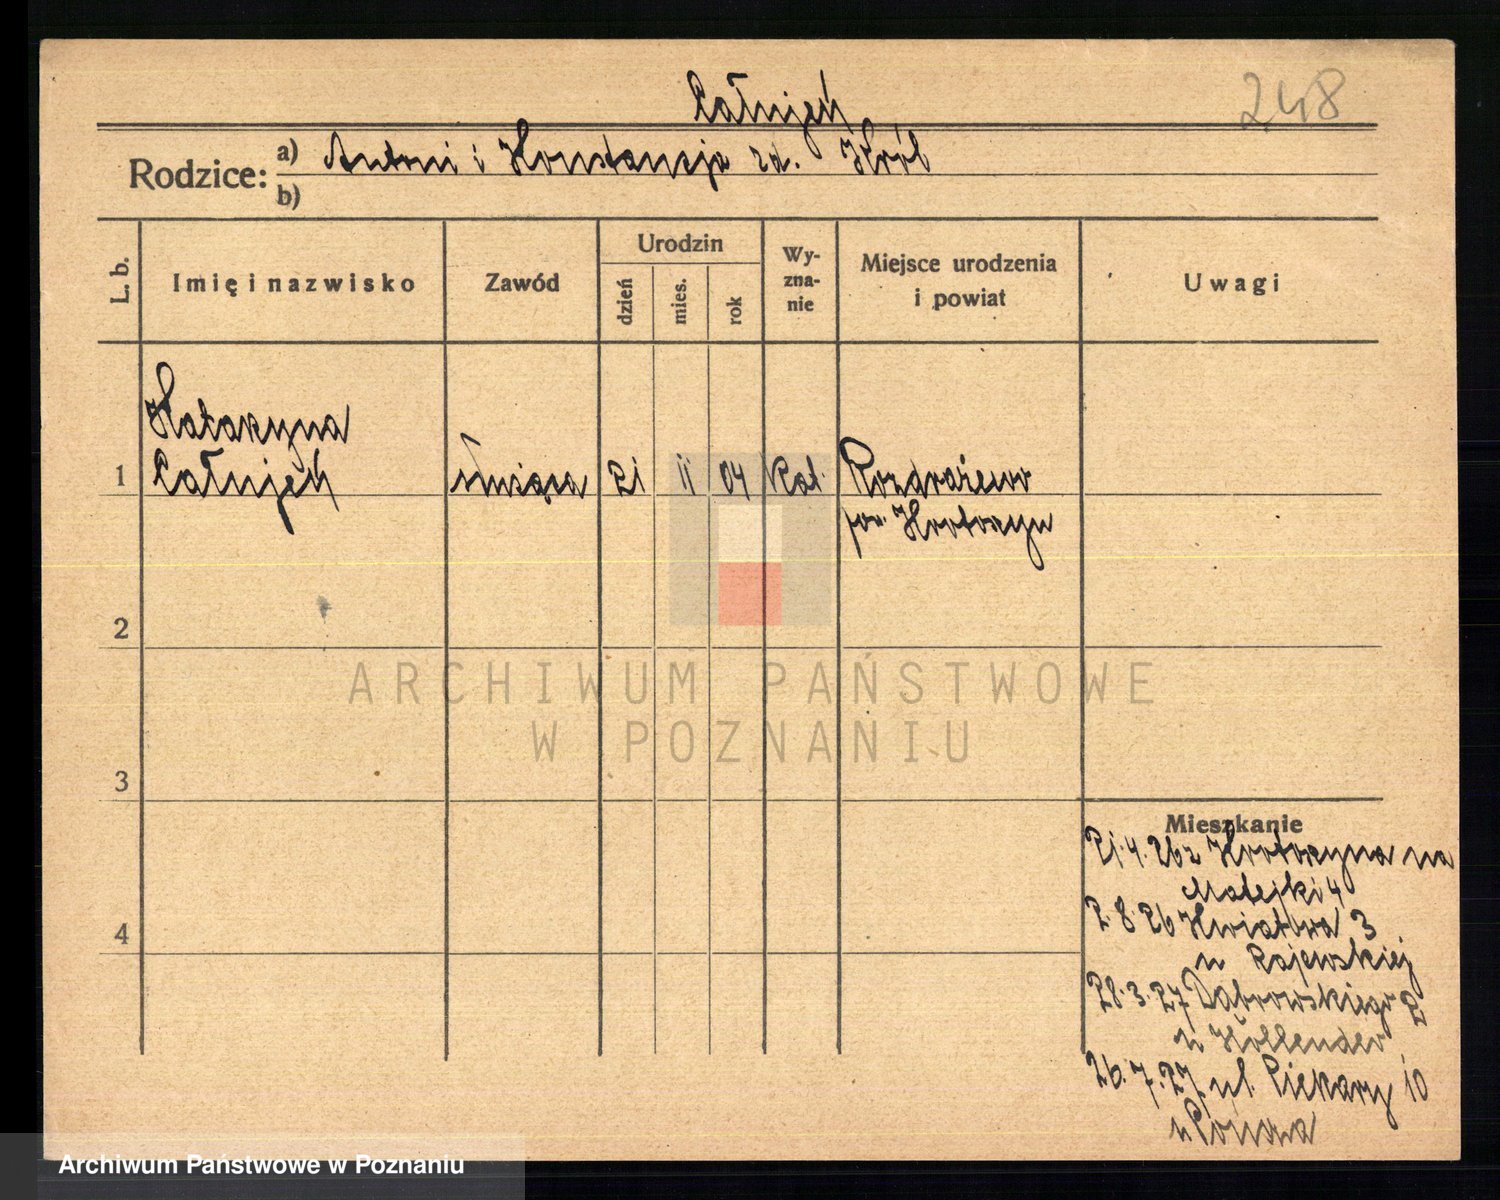 Całujeń
248
Rodzice: a) Antoni i Konstancja zd. Król
b)
L. b. Imię i nazwisko Zawód Urodzin dzień mies. rok Wyznanie Miejsce urodzenia i powiat Uwagi
Katarzyna
1 Całujeń służąca 21 11 04 kat. Rozdrażewo
pow. Krotoszyn
2
3
4
Mieszkanie
21.4.26 z Krotoszyna na
Matejki 4
2.8.26 Kwiatowa 3
u Rajewskiej
28.3.27 Dąbrowskiego 2
u Hollender
26.7.27 ul. Piekary 10
u
ARCHIWUM PAŃSTWOWE
W POZNANIU
Archiwum Państwowe w Poznaniu